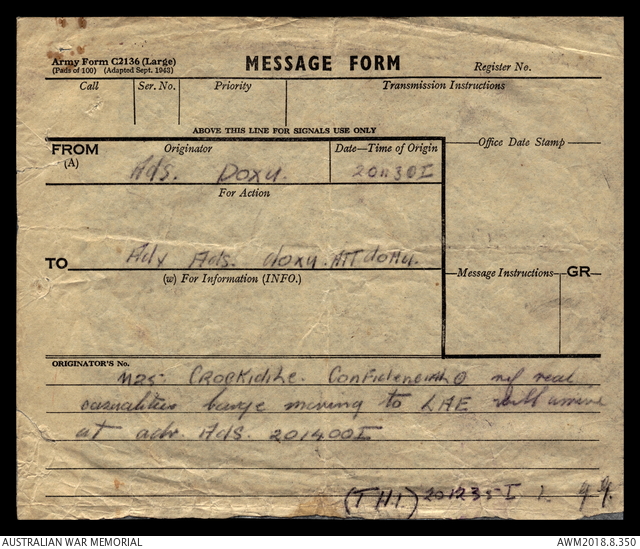 Army Form C2136 (Large)
(Pads of 100) (Adapted Sept. 1943)
MESSAGE FORM
Register No.
Call Ser. No. Priority Transmission Instructions
ABOVE THIS LINE FOR SIGNALS USE ONLY
FROM (A) Originator Date—Time of Origin Office Date Stamp
Ads. Doxy. 201130I
For Action
TO Adv Ads. doxy.
(w) For Information (INFO.)
Message Instructions GR
ORIGINATOR'S No.
casualties barge moving to LAE will arrive
at adv. Ads. 201400I
(THI) 201235I
AUSTRALIAN WAR MEMORIAL AWM2018.8.350